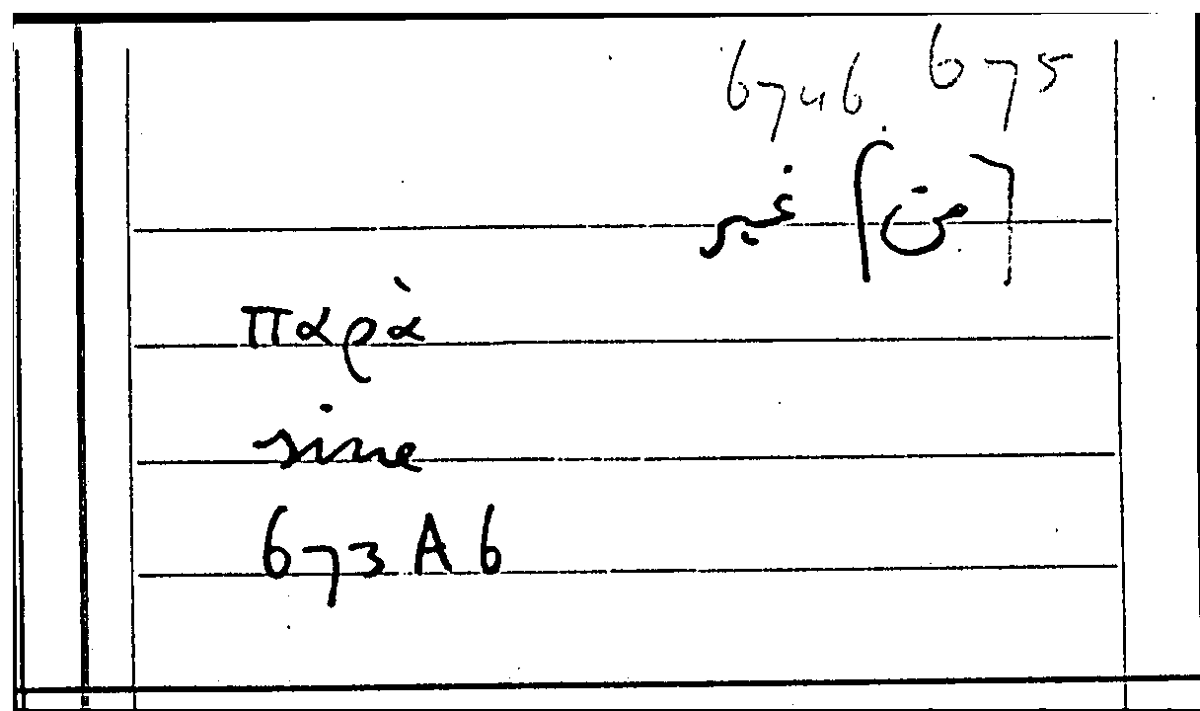 674b 675
[من] غير
παρὰ
sine
673 A 6